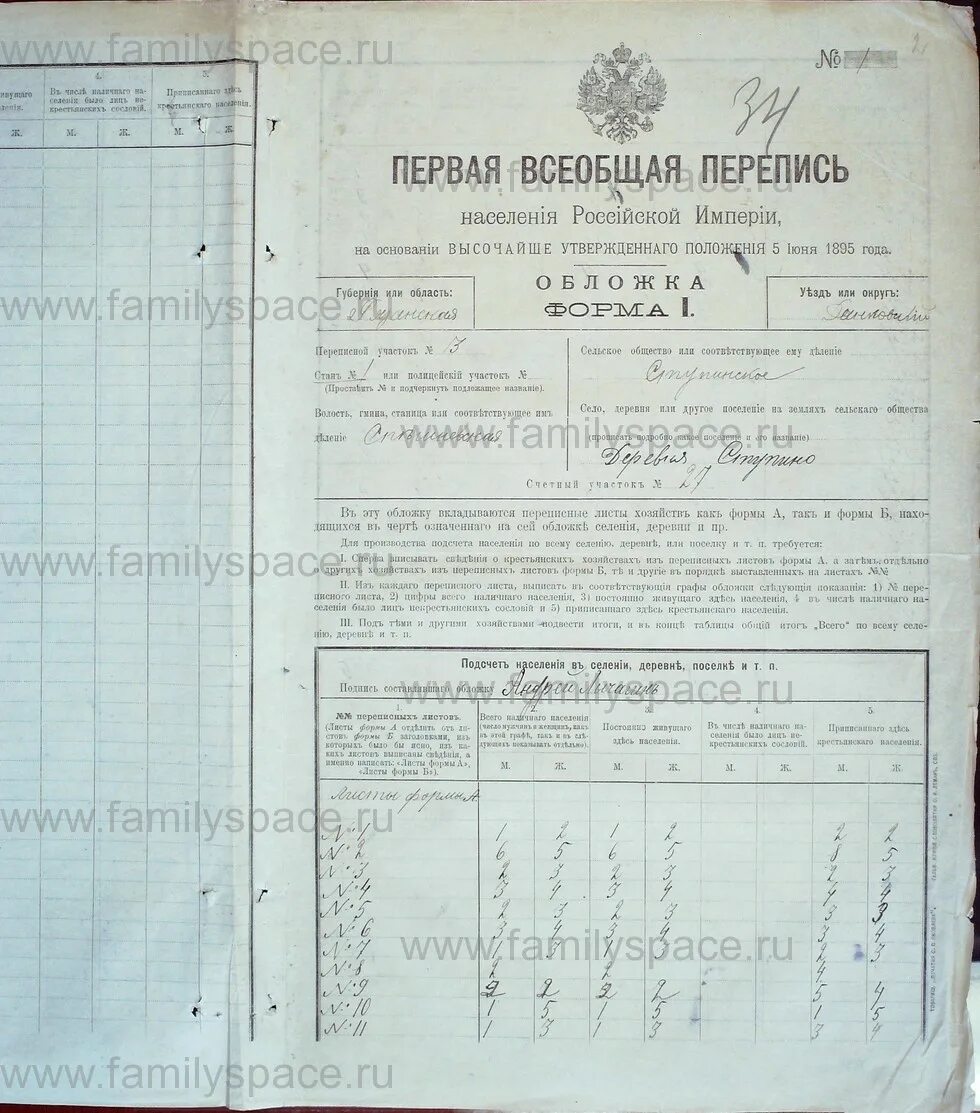 www.familyspace.ru
№ 1
34
ПЕРВАЯ ВСЕОБЩАЯ ПЕРЕПИСЬ
населенія Россійской Имперіи,
на основаніи ВЫСОЧАЙШЕ УТВЕРЖДЕННАГО ПОЛОЖЕНІЯ 5 Іюня 1895 года.
ОБЛОЖКА
ФОРМА I.
Губернія или область:
Рязанская
Уѣздъ или округъ:
Данковскій
Переписной участокъ № 3
Станъ № 1 или полицейскій участокъ №
(Проставить № и подчеркнуть подлежащее названіе).
Волость, гмина, станица или соотвѣтствующее имъ
дѣленіе
Сельское общество или соотвѣтствующее ему дѣленіе
Ступинское
Село, деревня или другое поселеніе на земляхъ сельскаго общества
(прописать подробно какое поселеніе и его названіе)
Деревня Ступино
Счетный участокъ № 27
Въ эту обложку вкладываются переписные листы хозяйствъ какъ формы А, такъ и формы Б, нахо-
дящихся въ чертѣ означеннаго на сей обложкѣ селенія, деревни и пр.
Для производства подсчета населенія по всему селенію, деревнѣ, или поселку и т. п. требуется:
I. Сперва вписывать свѣдѣнія о крестьянскихъ хозяйствахъ изъ переписныхъ листовъ формы А, а затѣмъ отдѣльно
о другихъ хозяйствахъ изъ переписныхъ листовъ формы Б, тѣ и другіе въ порядкѣ выставленныхъ на листахъ №№
II. Изъ каждаго переписного листа, выписать въ соотвѣтствующія графы обложки слѣдующія показанія: 1) № пере-
писного листа, 2) цифры всего наличнаго населенія, 3) постоянно живущаго здѣсь населенія, 4 въ числѣ наличнаго на-
селенія было лицъ некрестьянскихъ сословій и 5) приписаннаго здѣсь крестьянскаго населенія.
III. Подъ тѣми и другими хозяйствами подвести итоги, и въ концѣ таблицы общій итогъ „Всего" по всему селе-
нію, деревнѣ и т. п.
Подсчетъ населенія въ селеніи, деревнѣ, поселкѣ и т. п.
Подпись составлявшаго обложку Андрей
1. 2. 3. 4. 5.
№№ переписныхъ листовъ.
(Листы формы А отдѣлить отъ ли-
стовъ формы Б заголовками, изъ
которыхъ было бы ясно, изъ ка-
кихъ листовъ выписаны свѣдѣнія, а
именно написать: «Листы формы А»,
«Листы формы Б»).
Всего наличнаго населенія
(число мужчинъ и женщинъ, какъ
въ этой графѣ, такъ и въ слѣ-
дующихъ показывать отдѣльно).
Постоянно живущаго
здѣсь населенія.
Въ числѣ наличнаго на-
селенія было лицъ не-
крестьянскихъ сословій.
Приписаннаго здѣсь
крестьянскаго населенія.
М. Ж. М. Ж. М. Ж. М. Ж.
Листы формы А
№ 1 1 2 1 2 2 2
№ 2 6 5 6 5 8 5
№ 3 2 3 2 3 2 3
№ 4 3 4 3 4 4
№ 5 2 3 2 3 3 3
№ 6 3 4 3 4 3 4
№ 7 1 3 1 3 2 3
№ 8 2 2 4
№ 9 2 2 2 2 5 4
№ 10 1 5 1 5 1 5
№ 11 1 3 1 3 3 4
4. 5.
Въ числѣ наличнаго на-
селенія было лицъ не-
крестьянскихъ сословій.
Приписаннаго здѣсь
крестьянскаго населенія.
Ж. М. Ж. М. Ж.